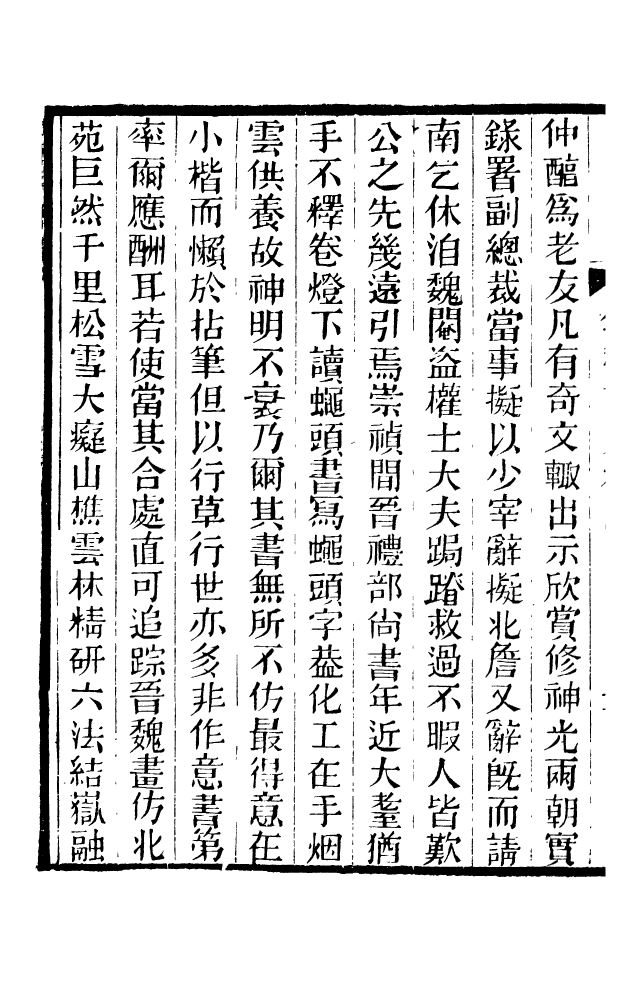 仲醇爲老友凡有奇文輙出示欣賞修神光兩朝實
錄署副總裁當事擬以少宰辭擬北詹又辭旣而請
南乞休洎魏閹盗權士大夫跼蹐救過不暇人皆歎
公之先幾遠引焉崇禎間晉禮部尙書年近大耋猶
手不釋卷燈下讀蠅頭書寫蠅頭字葢化工在手烟
雲供養故神明不衰乃爾其書無所不仿最得意在
小楷而懶於拈筆但以行草行世亦多非作意書第
率爾應酬耳若使當其合處直可追踪晉魏畫仿北
苑巨然千里松雪大癡山樵雲林精研六法結嶽融